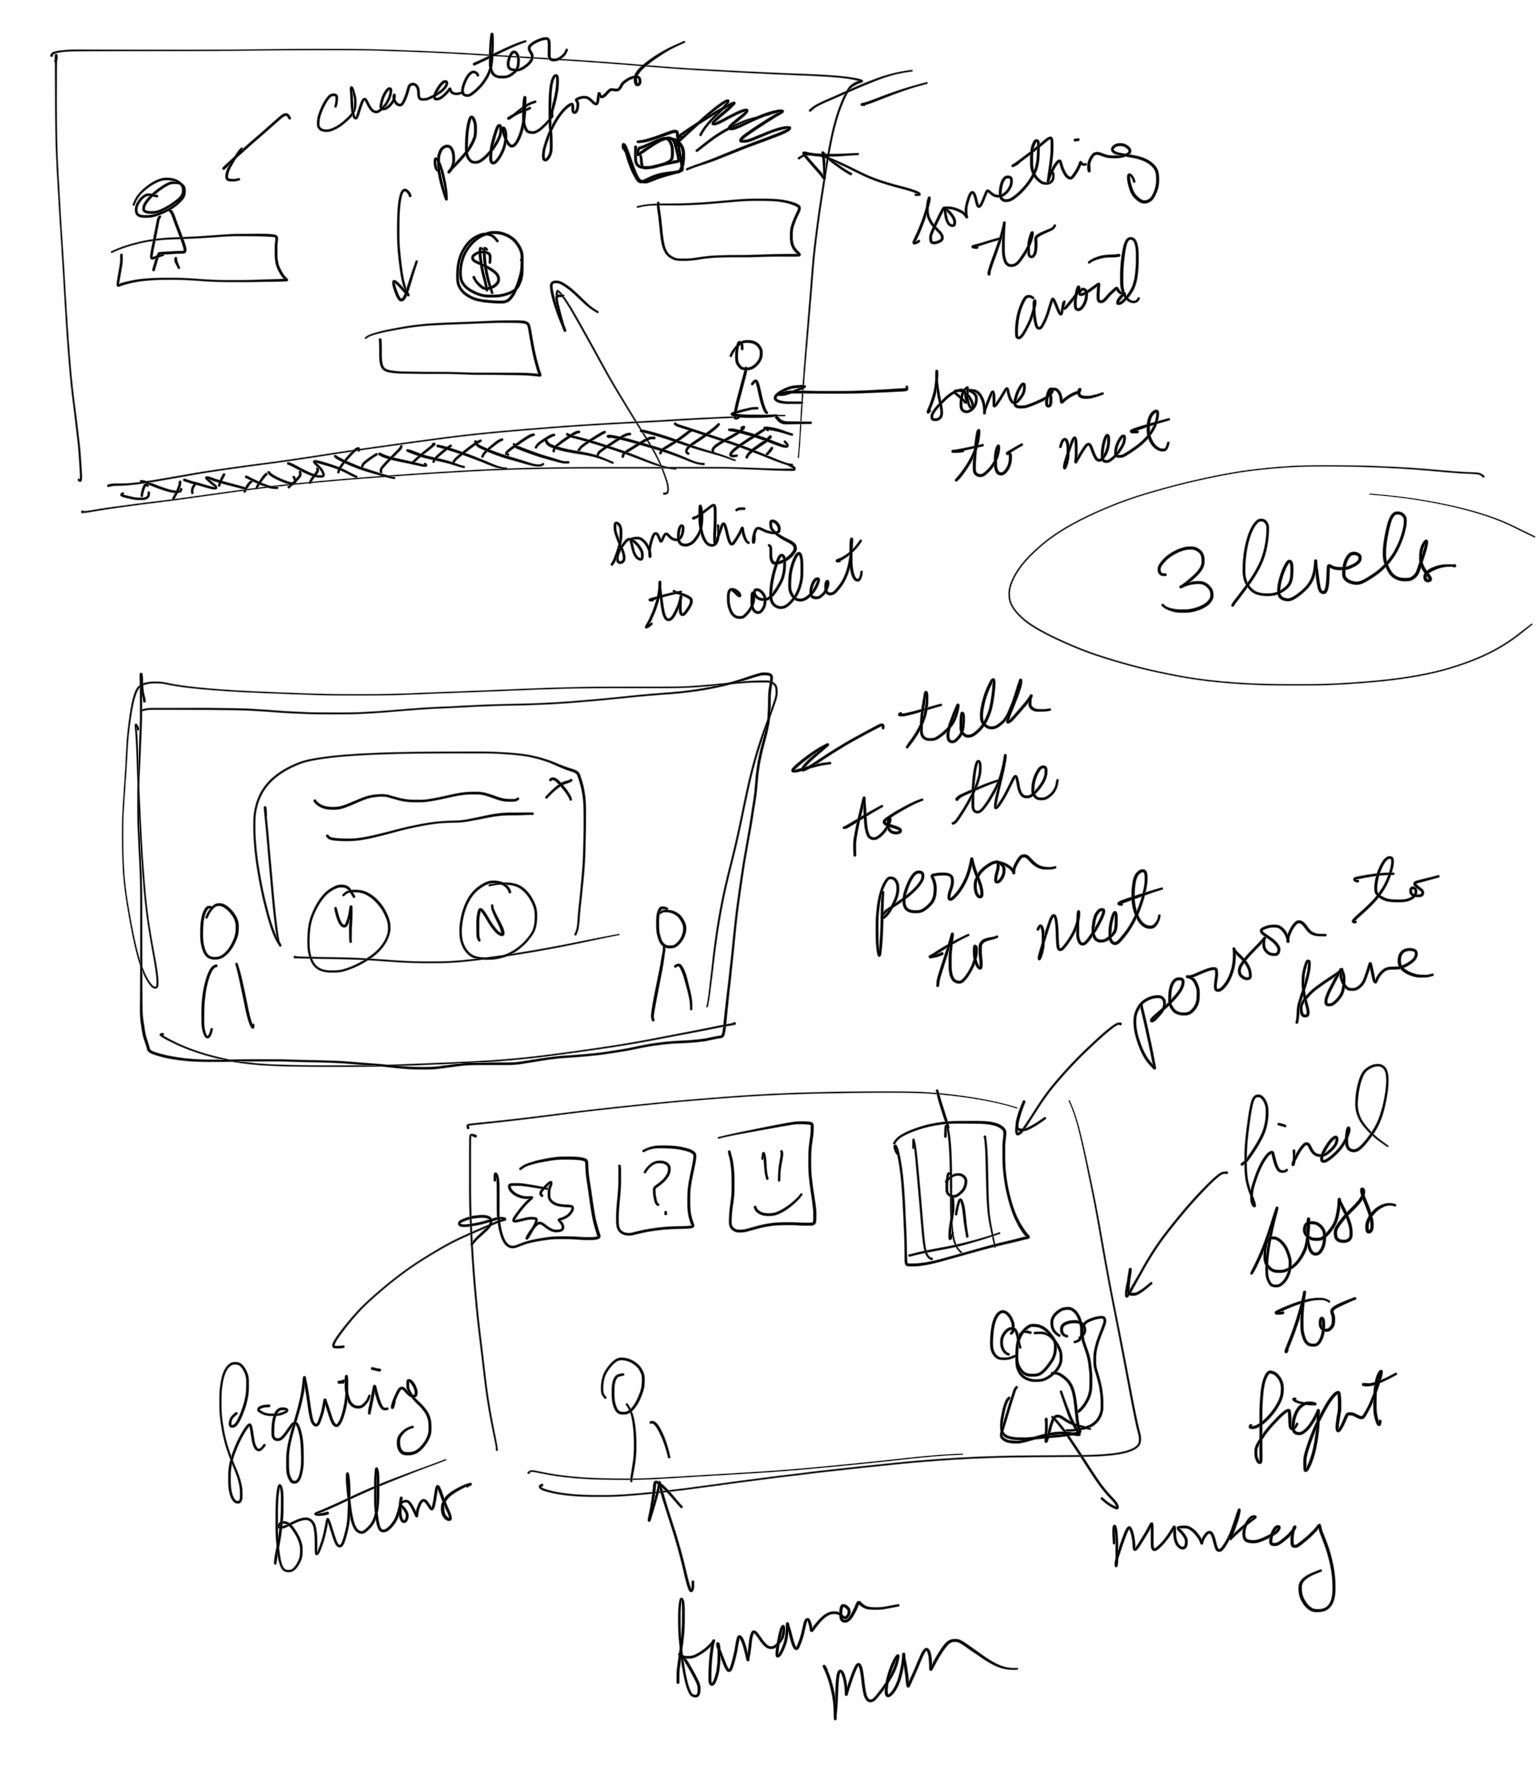 character
platforms
$
something
to
avoid
someone
to meet
something
to collect
3 levels
talk
to the
person
to meet
X
Y N
person to
save
?
final
boss
to
fight
fighting
buttons
monkey
banana
man